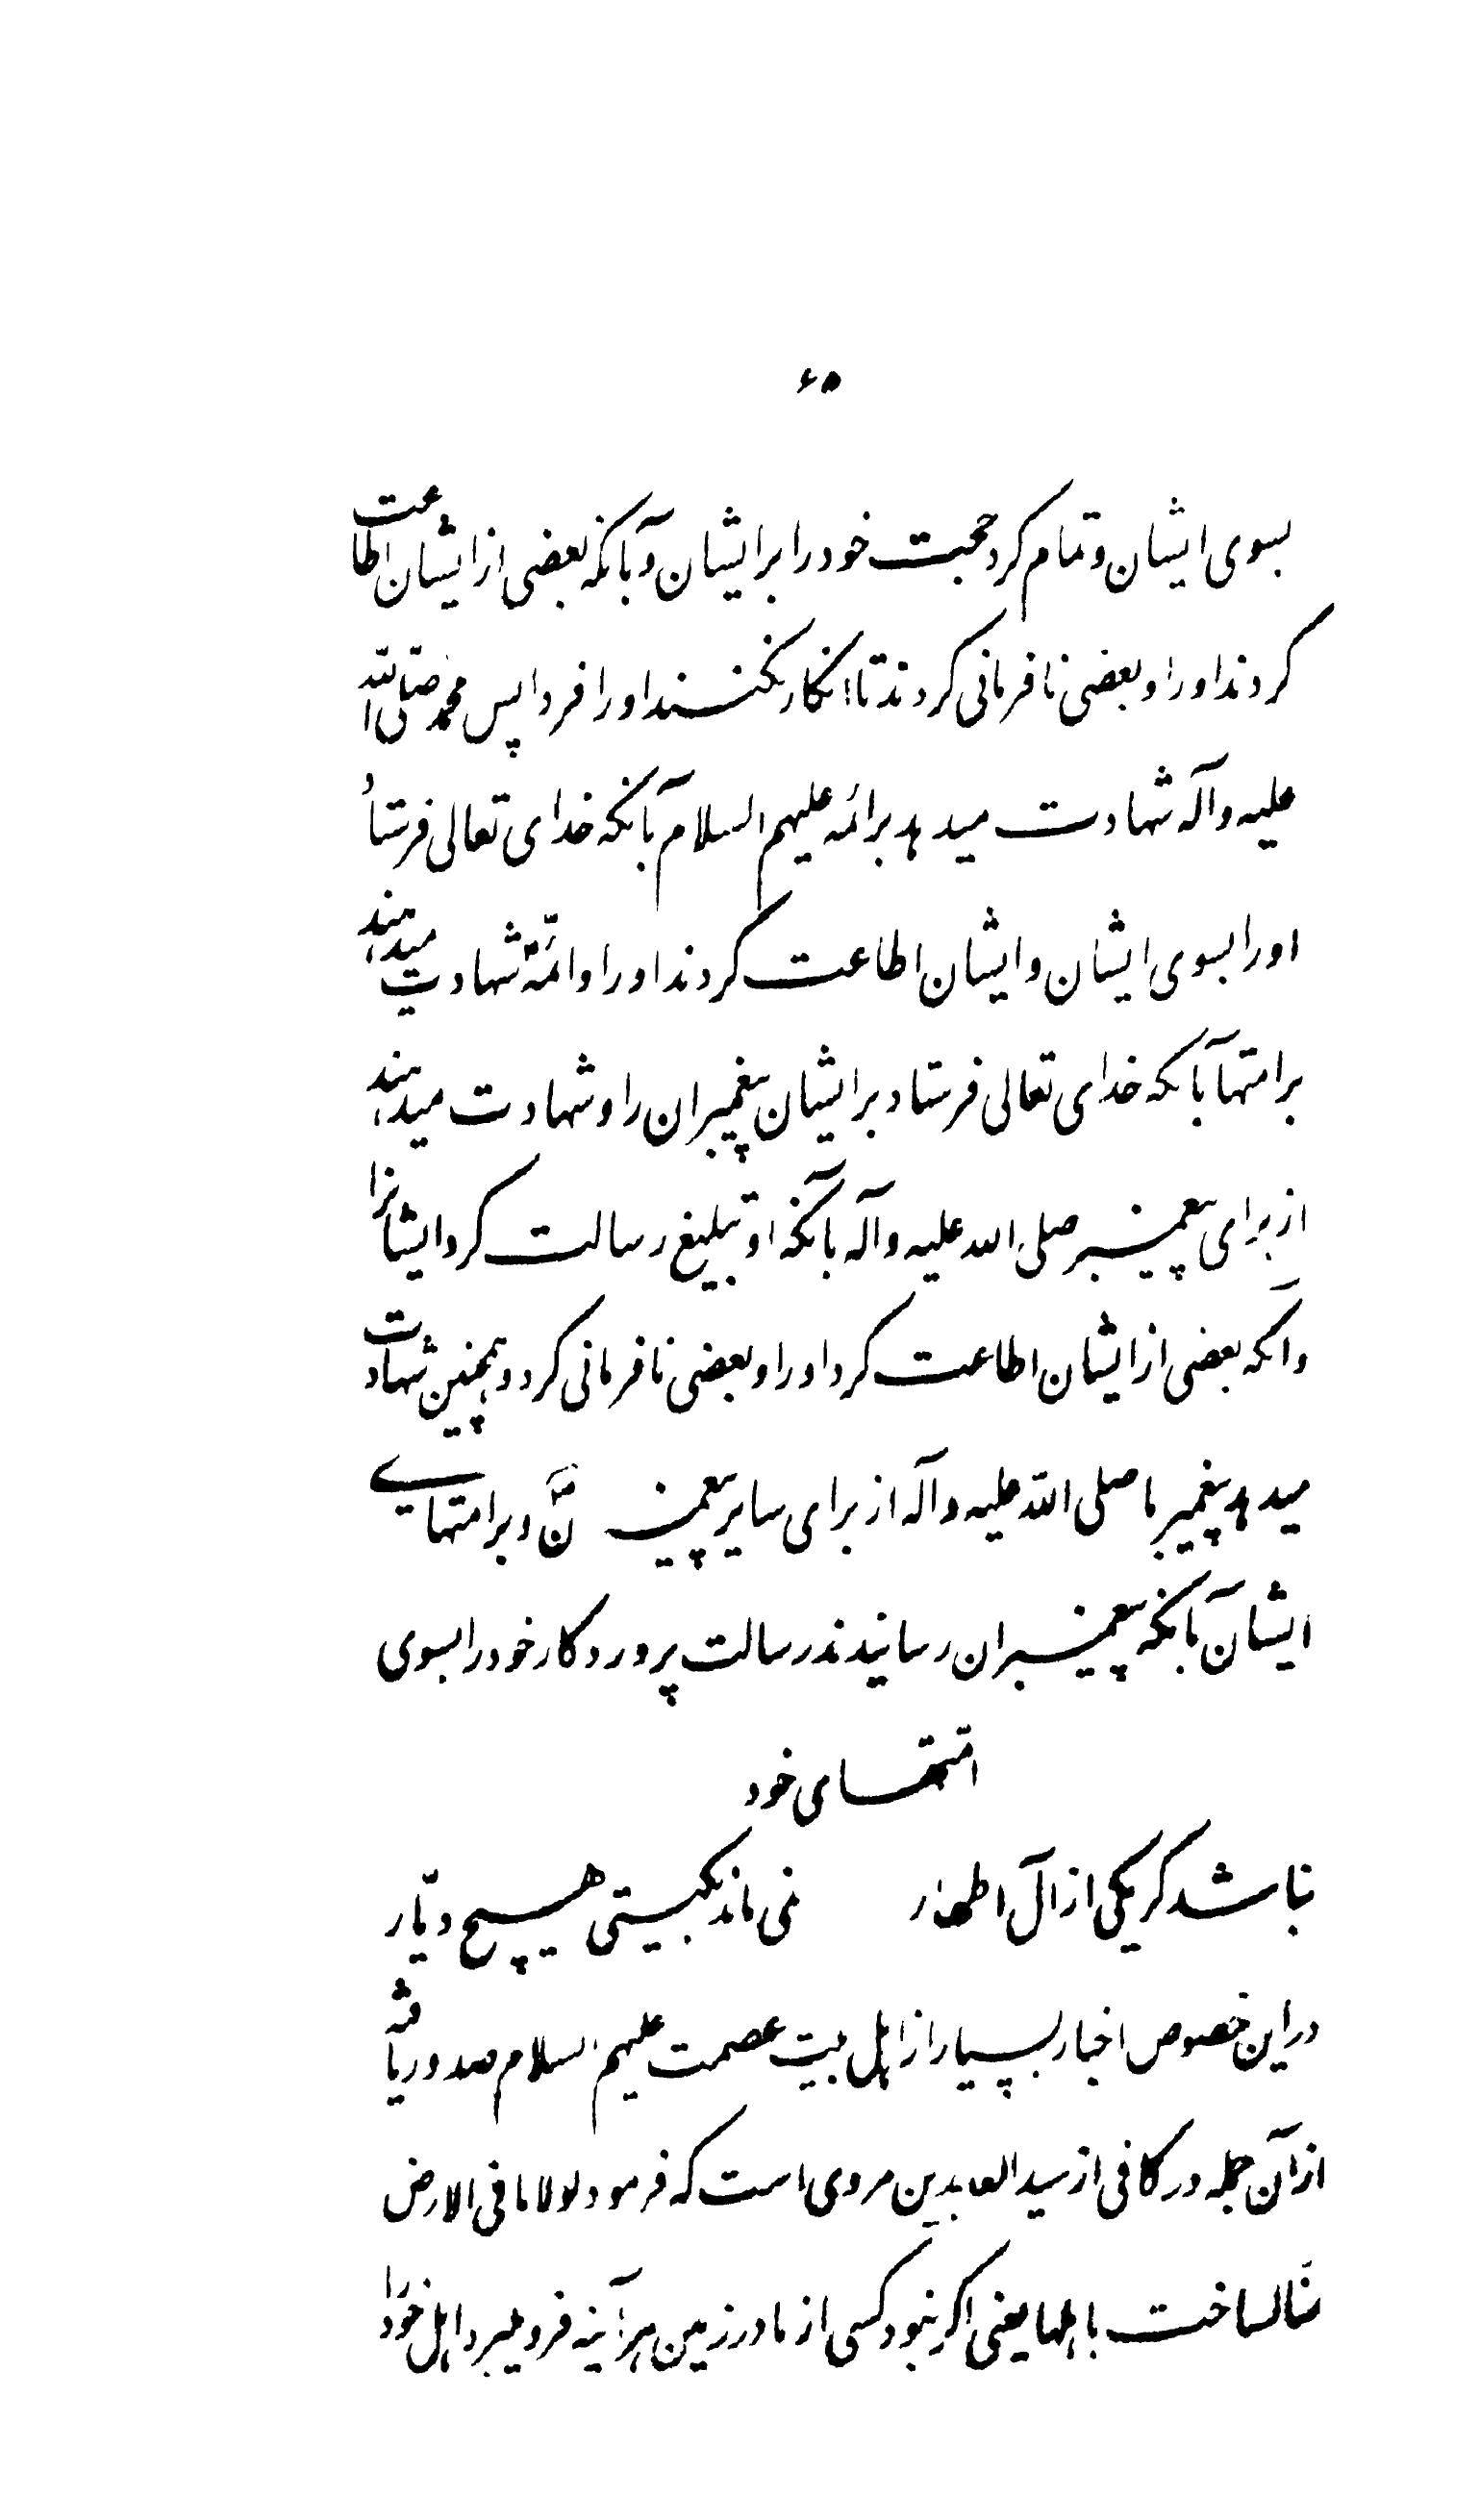 بسوی ایشان و تمام کرد حجت خود را بر ایشان و بآنکه بعضی از ایشان اطاعت
کردند او را و بعضی نافرمانی کردند تا انکار نکنند او را فردا پس محمد صلی الله
علیه و آله شهادت میدهد بر ائمه علیهم السلام بآنکه خدای تعالی فرستاد
او را بسوی ایشان و ایشان اطاعت کردند او را و ائمه شهادت میدهند
بر امتها بآنکه خدای تعالی فرستاد بر ایشان پیغمبران را و شهادت میدهند
از برای پیغمبر صلی الله علیه و آله بآنکه او تبلیغ رسالت کرد ایشانرا
و آنکه بعضی از ایشان اطاعت کرد او را و بعضی نافرمانی کرد و همچنین شهادت
میدهد پیغمبر ما صلی الله علیه و آله از برای سایر پیغمبران و بر امتهای
ایشان بآنکه پیغمبران رسانیدند رسالت پروردکار خود را بسوی
امتهای خود
نباشد کر یکی از آل اطهار نمی ماند بکیتی هیچ دیّار
در این خصوص اخبار بسیار از اهل بیت عصمت علیهم السلام صدور یافته
از آن جمله در کافی از سید العابدین مروی است که فرمود لولا ما فی الارض
منا لساخت باهلها یعنی اکر نبود کسی از ما در زمین هرآینه فرو میبرد اهل خود را